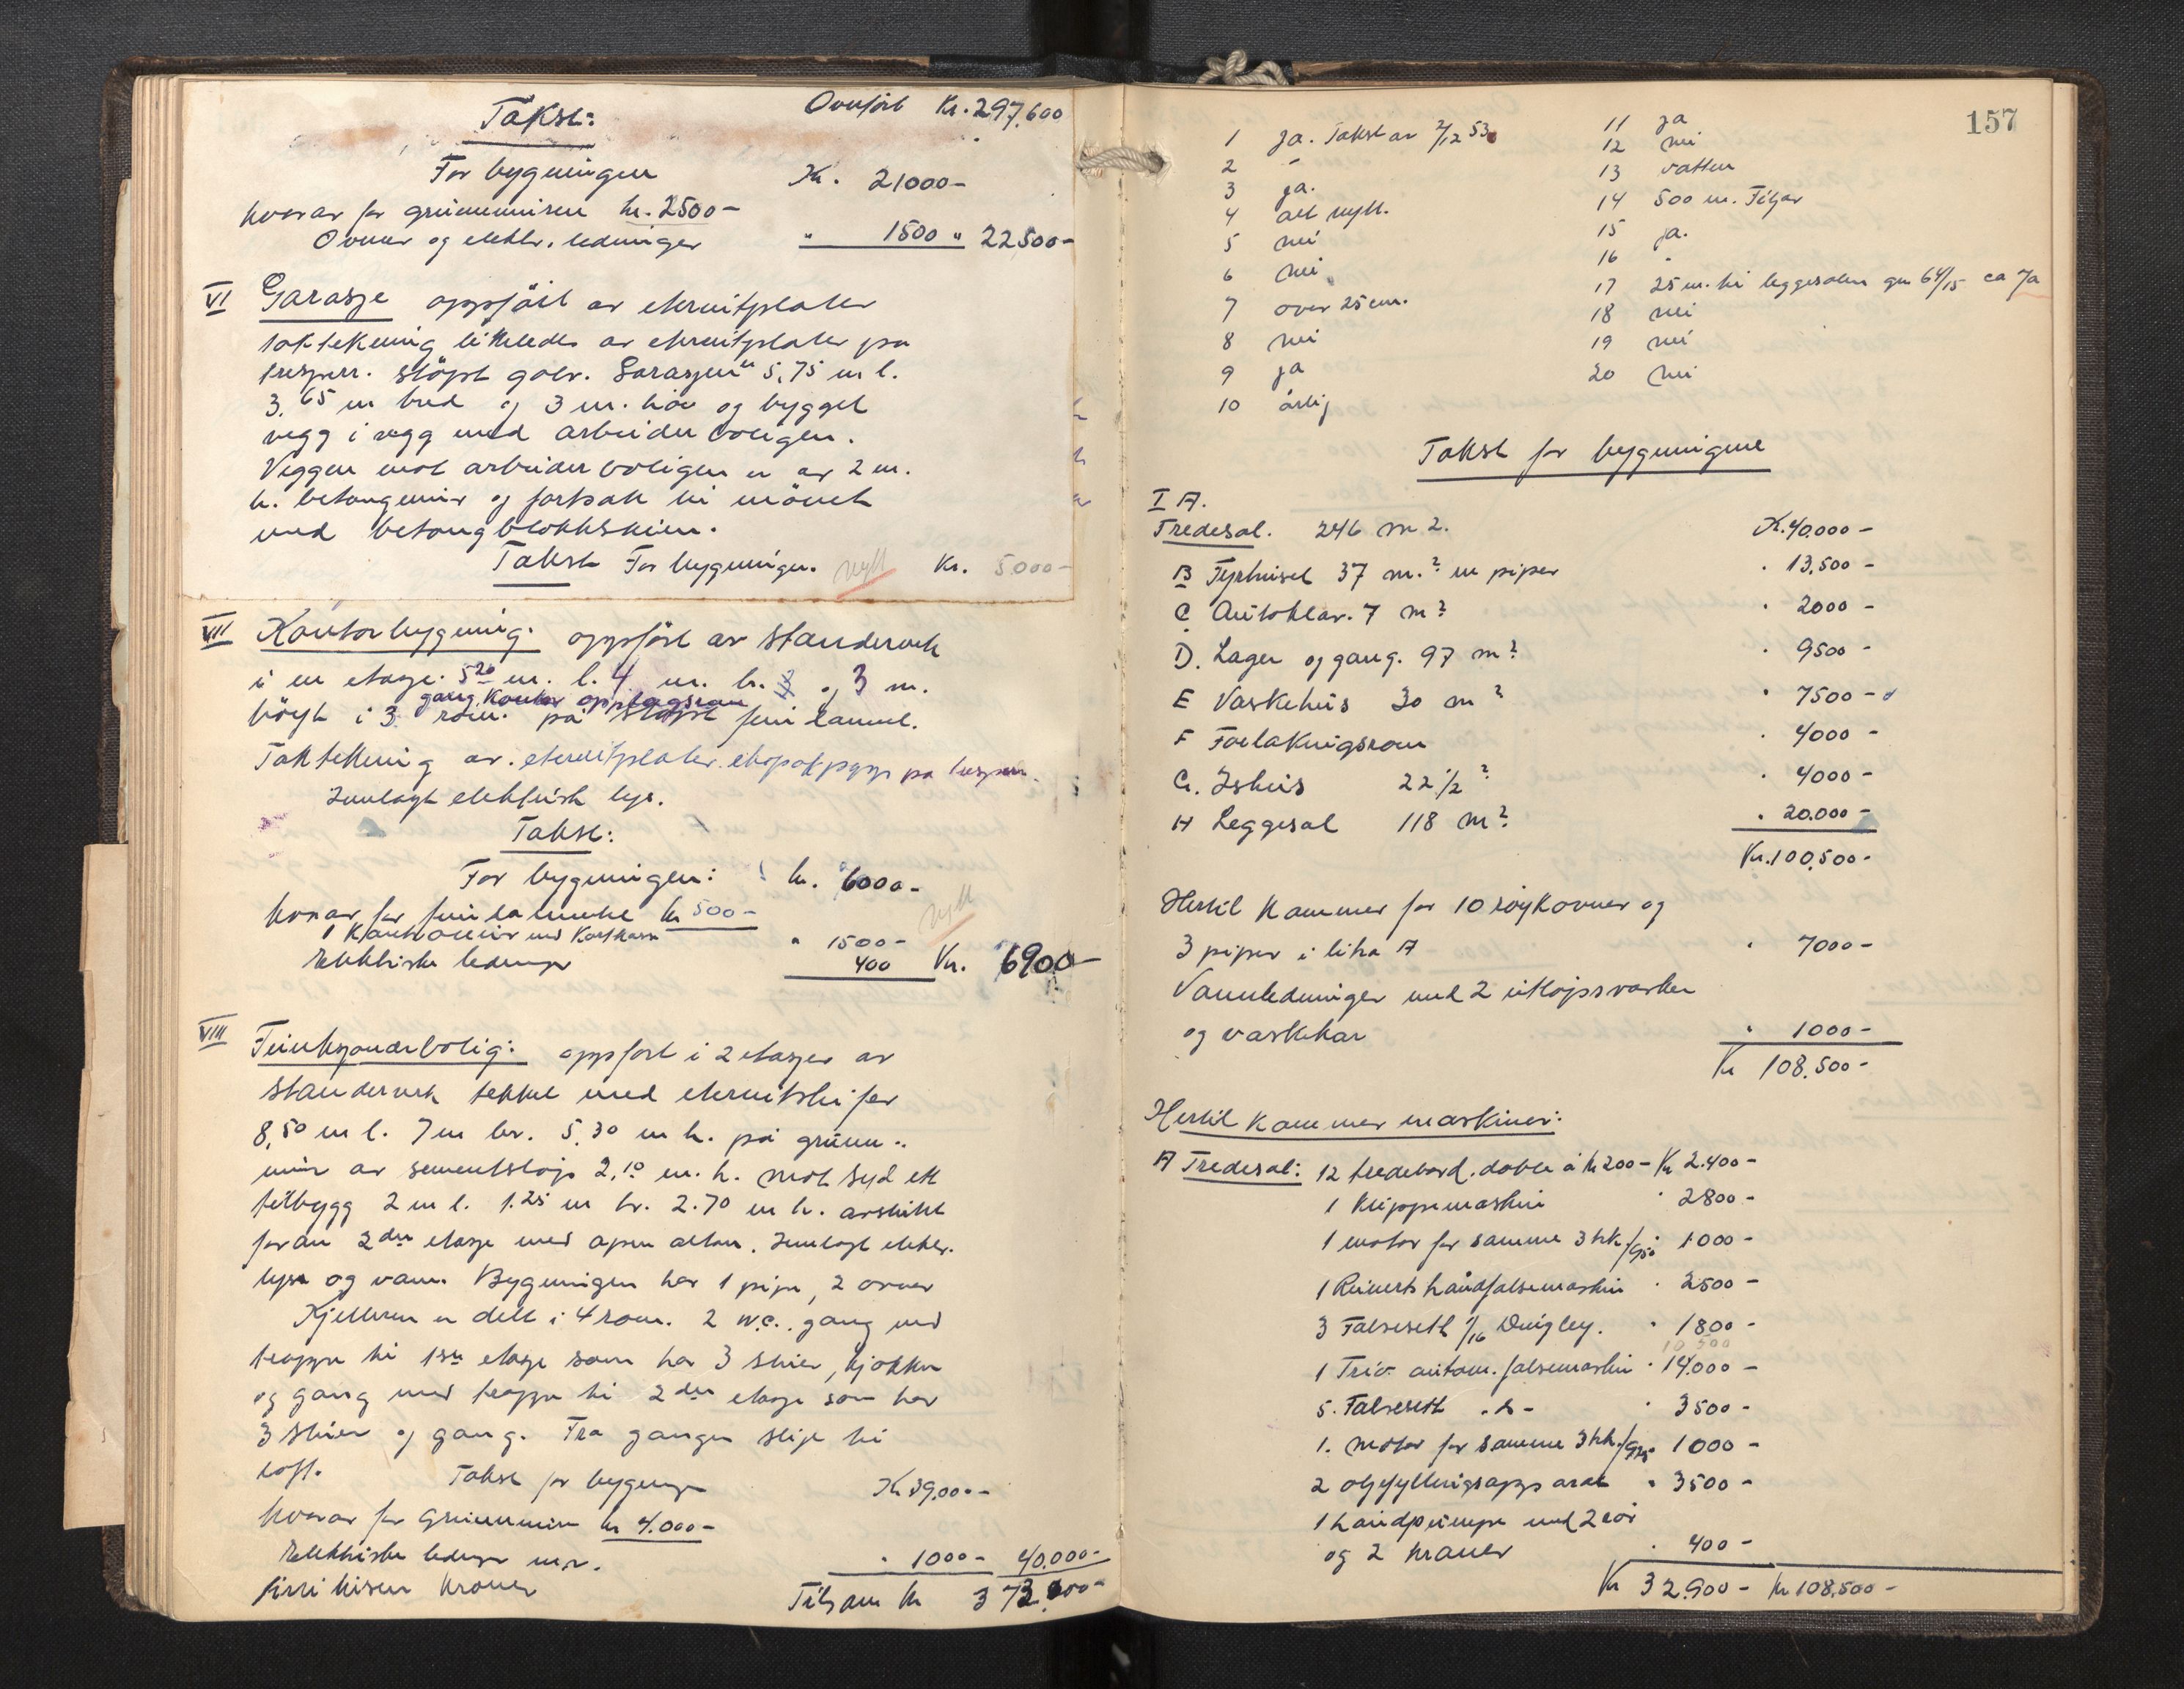 Takst: Overført Kr. 297.600
For bygningen Kr. 21000-
hvorav for grunnmuren kr. 2500-
Ovner og elektr. ledninger " 1500 " 22500-
VI Garasje oppført av eternitplater
taktekning likeledes av eternitplater på
tresperr. støpt golv. Garasjen er 5,75 m l.
3.65 m bred og 3 m. höi og bygget
vegg i vegg med arbeiderboligen.
Veggen mot arbeiderboligen er av 2 m.
h. betongmur og fortsatt til mønet
med betongblokkstein.
Takst For bygningen. nytt Kr. 5000-
VII Kontorbygning: oppført av standerverk
i en etasje. 5 20 m. l. 4 m. br. og 3 m.
gang, Kontor opplagsrom
höyt i 3 rom. på støpt fundament.
Taktekning av eternitplater på tresperr.
Innlagt elektrisk lys.
Takst:
For bygningen: kr. 6000-
hvorav for fundamentet kr 500- nytt
1500-
Elektriske ledninger 400 Kr. 6900-
VIII Funksjonærbolig: oppført i 2 etasjer av
standerverk tekket med eternitskifer
8,50 m l. 7 m br. 5.30 m h. på grunn-
mur av sementstøp 2,10 m. h. mot Syd ett
tilbygg 2 m l. 1.25 m br. 2.70 m h. avsluttet
foran 2den etasje med åpen altan. Innlagt elektr.
lys og vann. Bygningen har 1 pipe, 2 ovner
Kjelleren er delt i 4 rom. 2 w.c. gang med
trappe til 1ste etasje som har 3 stuer, kjøkken
og gang med trappe til 2den etasje som har
3 stuer og gang. Fra gangen stige til
loft. Takst for bygningen Kr 39.000-
hvorav for Grunnmur kr 4.000-
Elektriske ledninger m.v. " 1000- 40.000-
kroner Tilsam kr 373.000-
157
1 Ja. Takst av 2/12 53
2 "
3 ja.
4 alt nytt.
5 nei
6 nei
7 over 25 cm.
8 nei
9 ja
10 årlig
11 ja
12 nei
13 vatten
14 500 m. Filjar
15 ja.
16 "
17 25 m. til leggesalen gnr 64/15 ca 7a
18 nei
19 nei
20 nei
Takst for bygningene
I A.
Tredesal. 246 m 2. Kr. 40.000-
B Fyrhuset 37 m.2 m piper " 13.500-
C Autoklav. 7 m2 " 2000-
D. Lager og gang. 97 m2 " 9500-
E Vaskehus 30 m2 " 7500-
F Forlakningsrom " 4000-
G. Ishus 22 1/2 2 " 4000-
H Leggesal 118 m2 " 20.000-
Kr. 100.500-
Hertil kommer for 10 røykovner og
3 piper i litra A " 7000-
Vannledninger med 2 utløpsvasker
og vaskekar " 1000-
Kr 108.500-
Hertil kommer maskiner:
A Tredesal: 12 tredebord. doble á kr 200- Kr 2.400-
1 Klippemaskin " 2800-
1 motor for samme 3 hk /950 " 1000-
1 Reinerts håndfalsemaskin " 2500-
3 Falsesett 1/16 Dingley. " 1800-
10 500
1 Trio autom. falsemaskin " 14.000-
5. Falsesett " - 3500-
1. motor for samme 3 hk. /950 1000-
2 oljefyllingsapparat " 3500-
1 håndpumpe med 2 rör
og 2 kraner " 400-
Kr 32.900- kr 108.500-